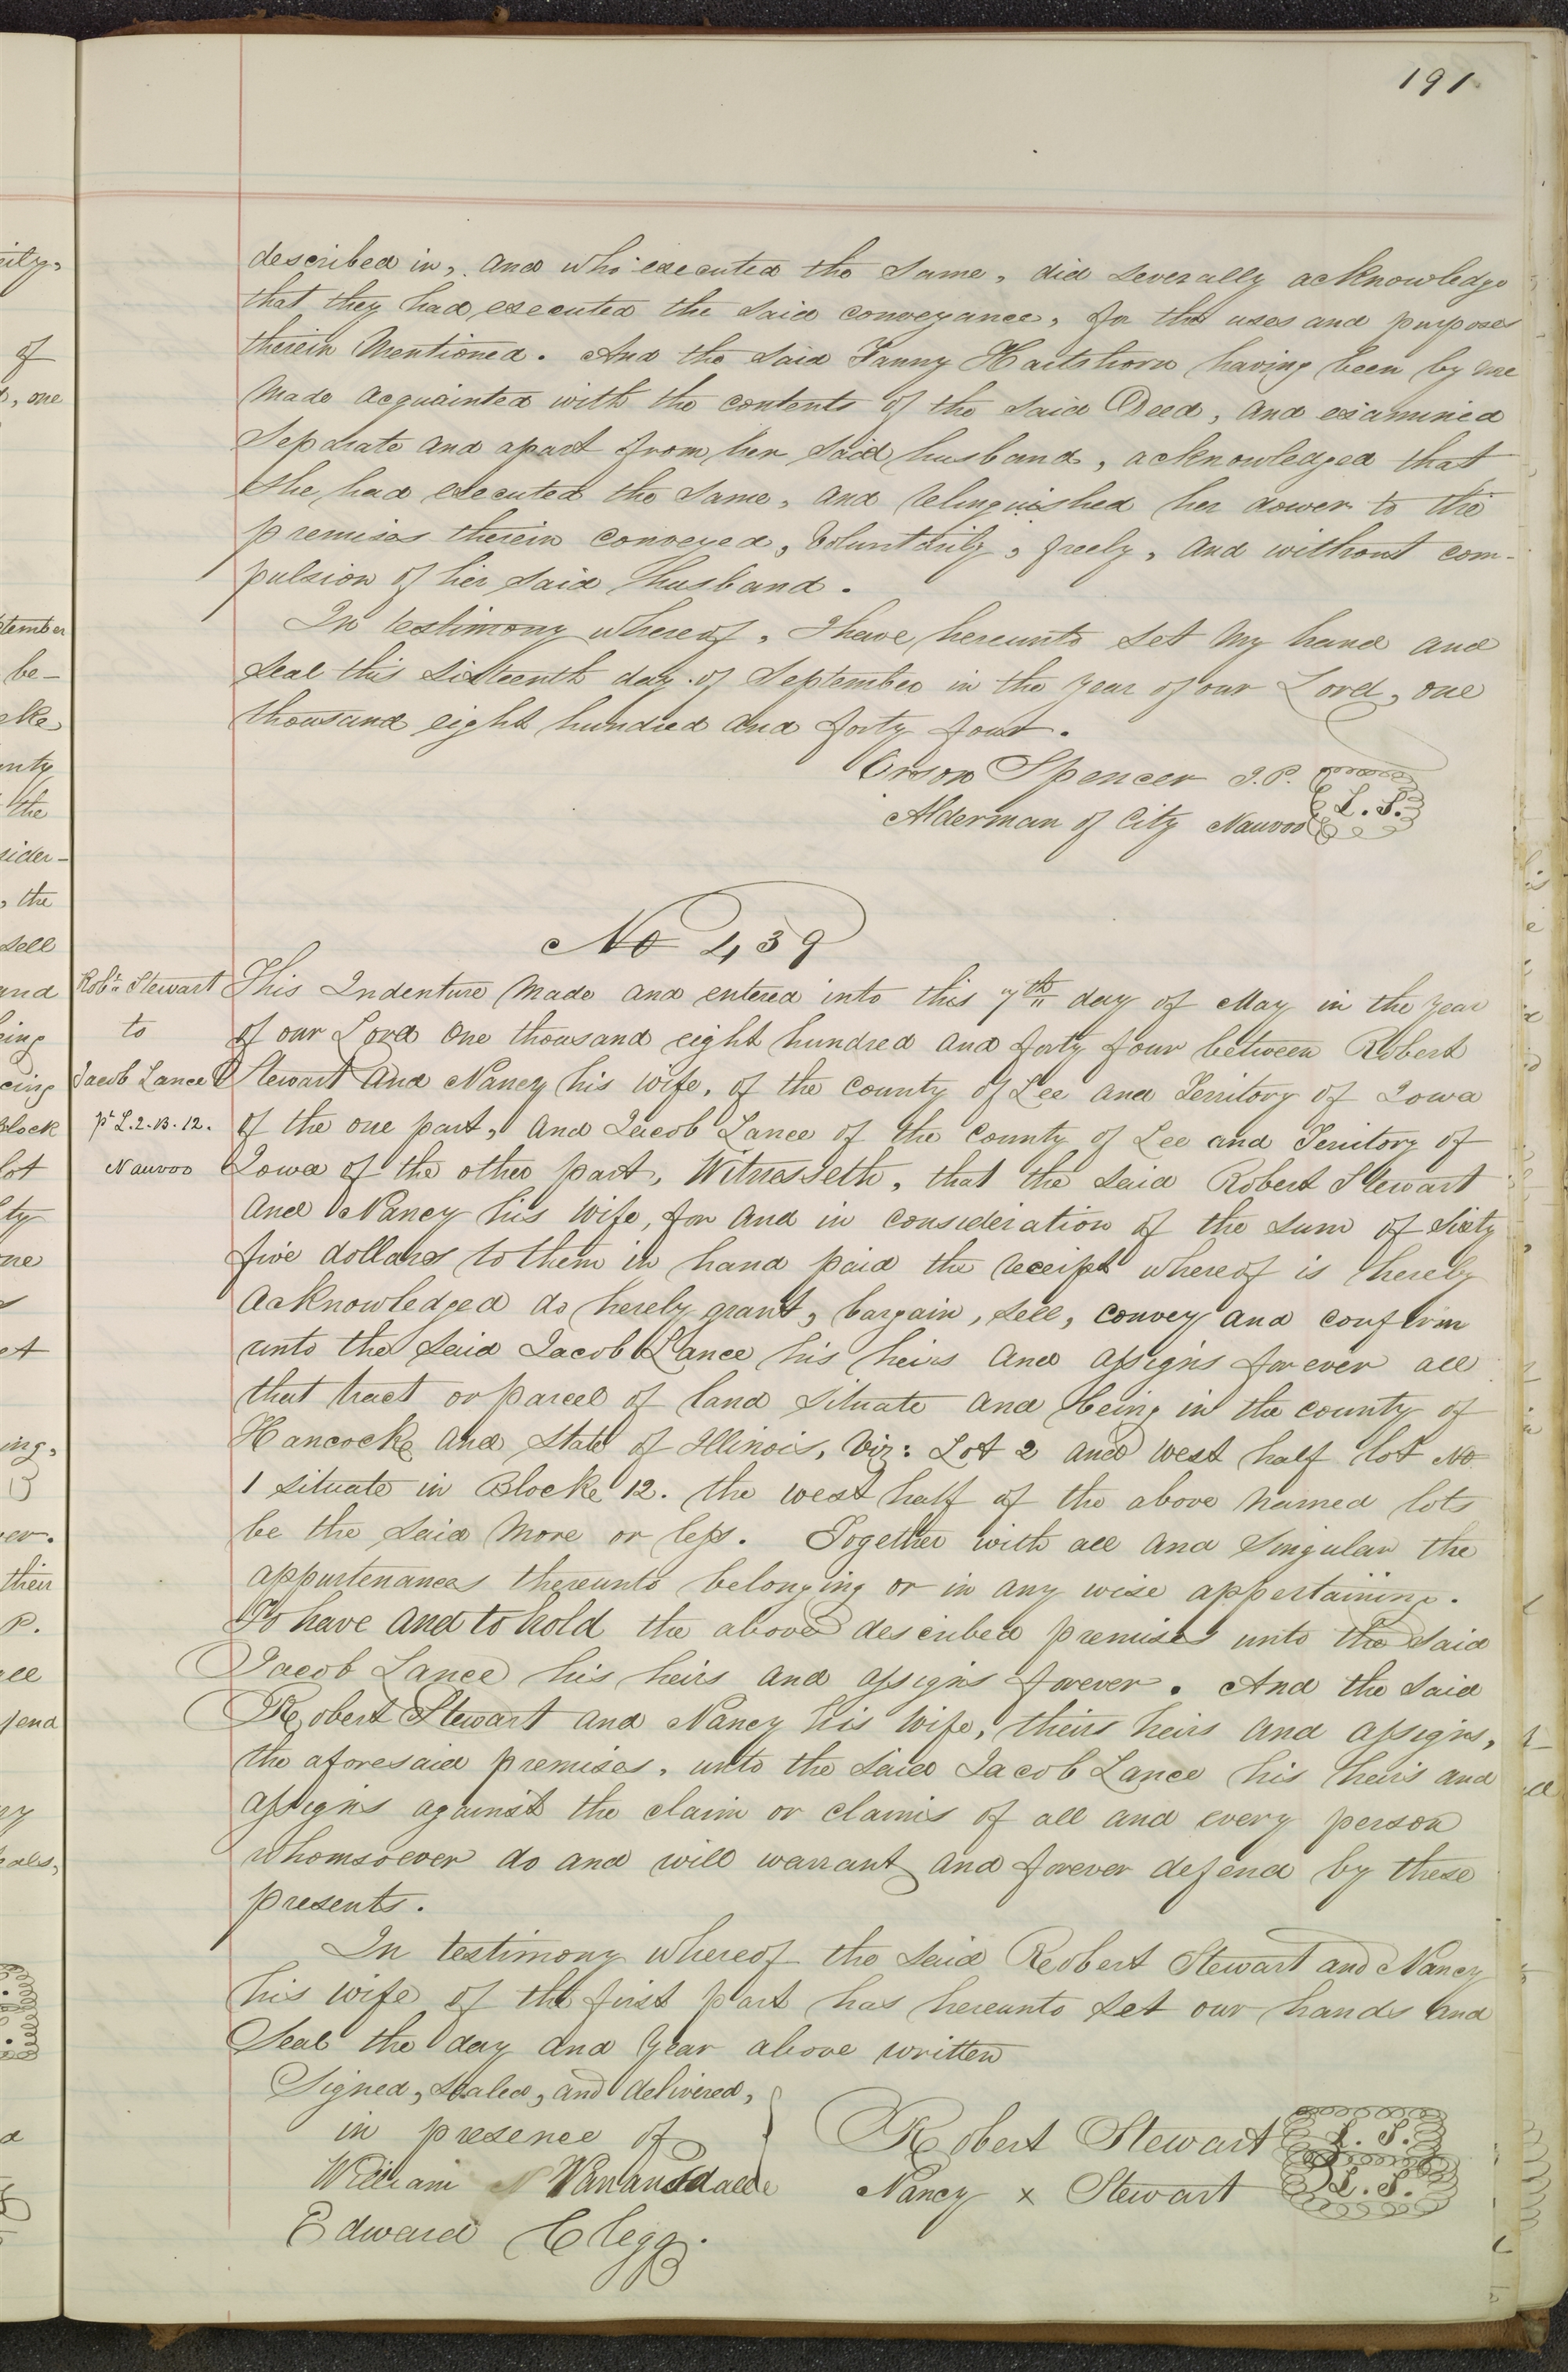 191
described in, and who executed the same, did severally acknowledge
that they had executed the said conveyance, for the uses and purposes
therein mentioned. And the said Fanny Hartshorn having been by me
made acquainted with the contents of the said Deed, and examined
separate and apart from her said husband, acknowledged that
she had executed the same, and relinquished her dower to the
premises therein conveyed, voluntarily, freely, and without com-
pulsion of her said husband.
In testimony whereof, I have hereunto set my hand and
seal this sixteenth day of September in the year of our Lord, one
thousand eight hundred and forty four.
Orson Spencer J.P.
L. S.
Alderman of City Nauvoo
No 439
Robt Stewart
to
Jacob Lance
pt L.2.B.12.
Nauvoo
This Indenture made and entered into this 7th day of May in the year
of our Lord one thousand eight hundred and forty four between Robert
Stewart and Nancy his wife, of the county of Lee and Territory of Iowa
of the one part, and Jacob Lance of the County of Lee and Territory of
Iowa of the other part, Witnesseth, that the said Robert Stewart
and Nancy his wife, for and in consideration of the sum of sixty
five dollars to them in hand paid the receipt whereof is hereby
acknowledged do hereby grant, bargain, sell, convey and confirm
unto the said Jacob Lance his heirs and assigns forever all
that tract or parcel of land situate and being in the county of
Hancock and State of Illinois, Viz: Lot 2 and west half lot No
1 situate in Block 12. the west half of the above named lots
be the said more or less. Together with all and singular the
appurtenances thereunto belonging or in any wise appertaining.
To have and to hold the above described premises unto the said
Jacob Lance his heirs and assigns forever. And the said
Robert Stewart and Nancy his wife, theirs heirs and assigns,
the aforesaid premises, unto the said Jacob Lance his heirs and
assigns against the claim or claims of all and every person
whomsoever do and will warrant and forever defend by these
presents.
In testimony whereof the said Robert Stewart and Nancy
his wife of the first part has hereunto set our hands and
Seal the day and year above written
Signed, sealed, and delivered,
in presence of
William N Vanausdalle
Edward Clegg.
Robert Stewart L. S.
Nancy x Stewart L. S.